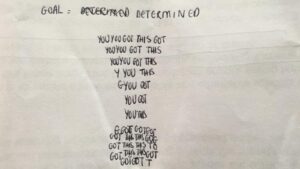 GOAL = DETERMINED
YOU YOU GOT THIS GOT
YOU YOU GOT THIS
YOU YOU GOT THIS
Y YOU THIS
G YOU GOT
YOU GOT
YOU THIS
G GOT GOT GOT
GOT THIS THIS GOT
GOT THIS THIS
GOT THIS THIS GOT
GOT GOT T